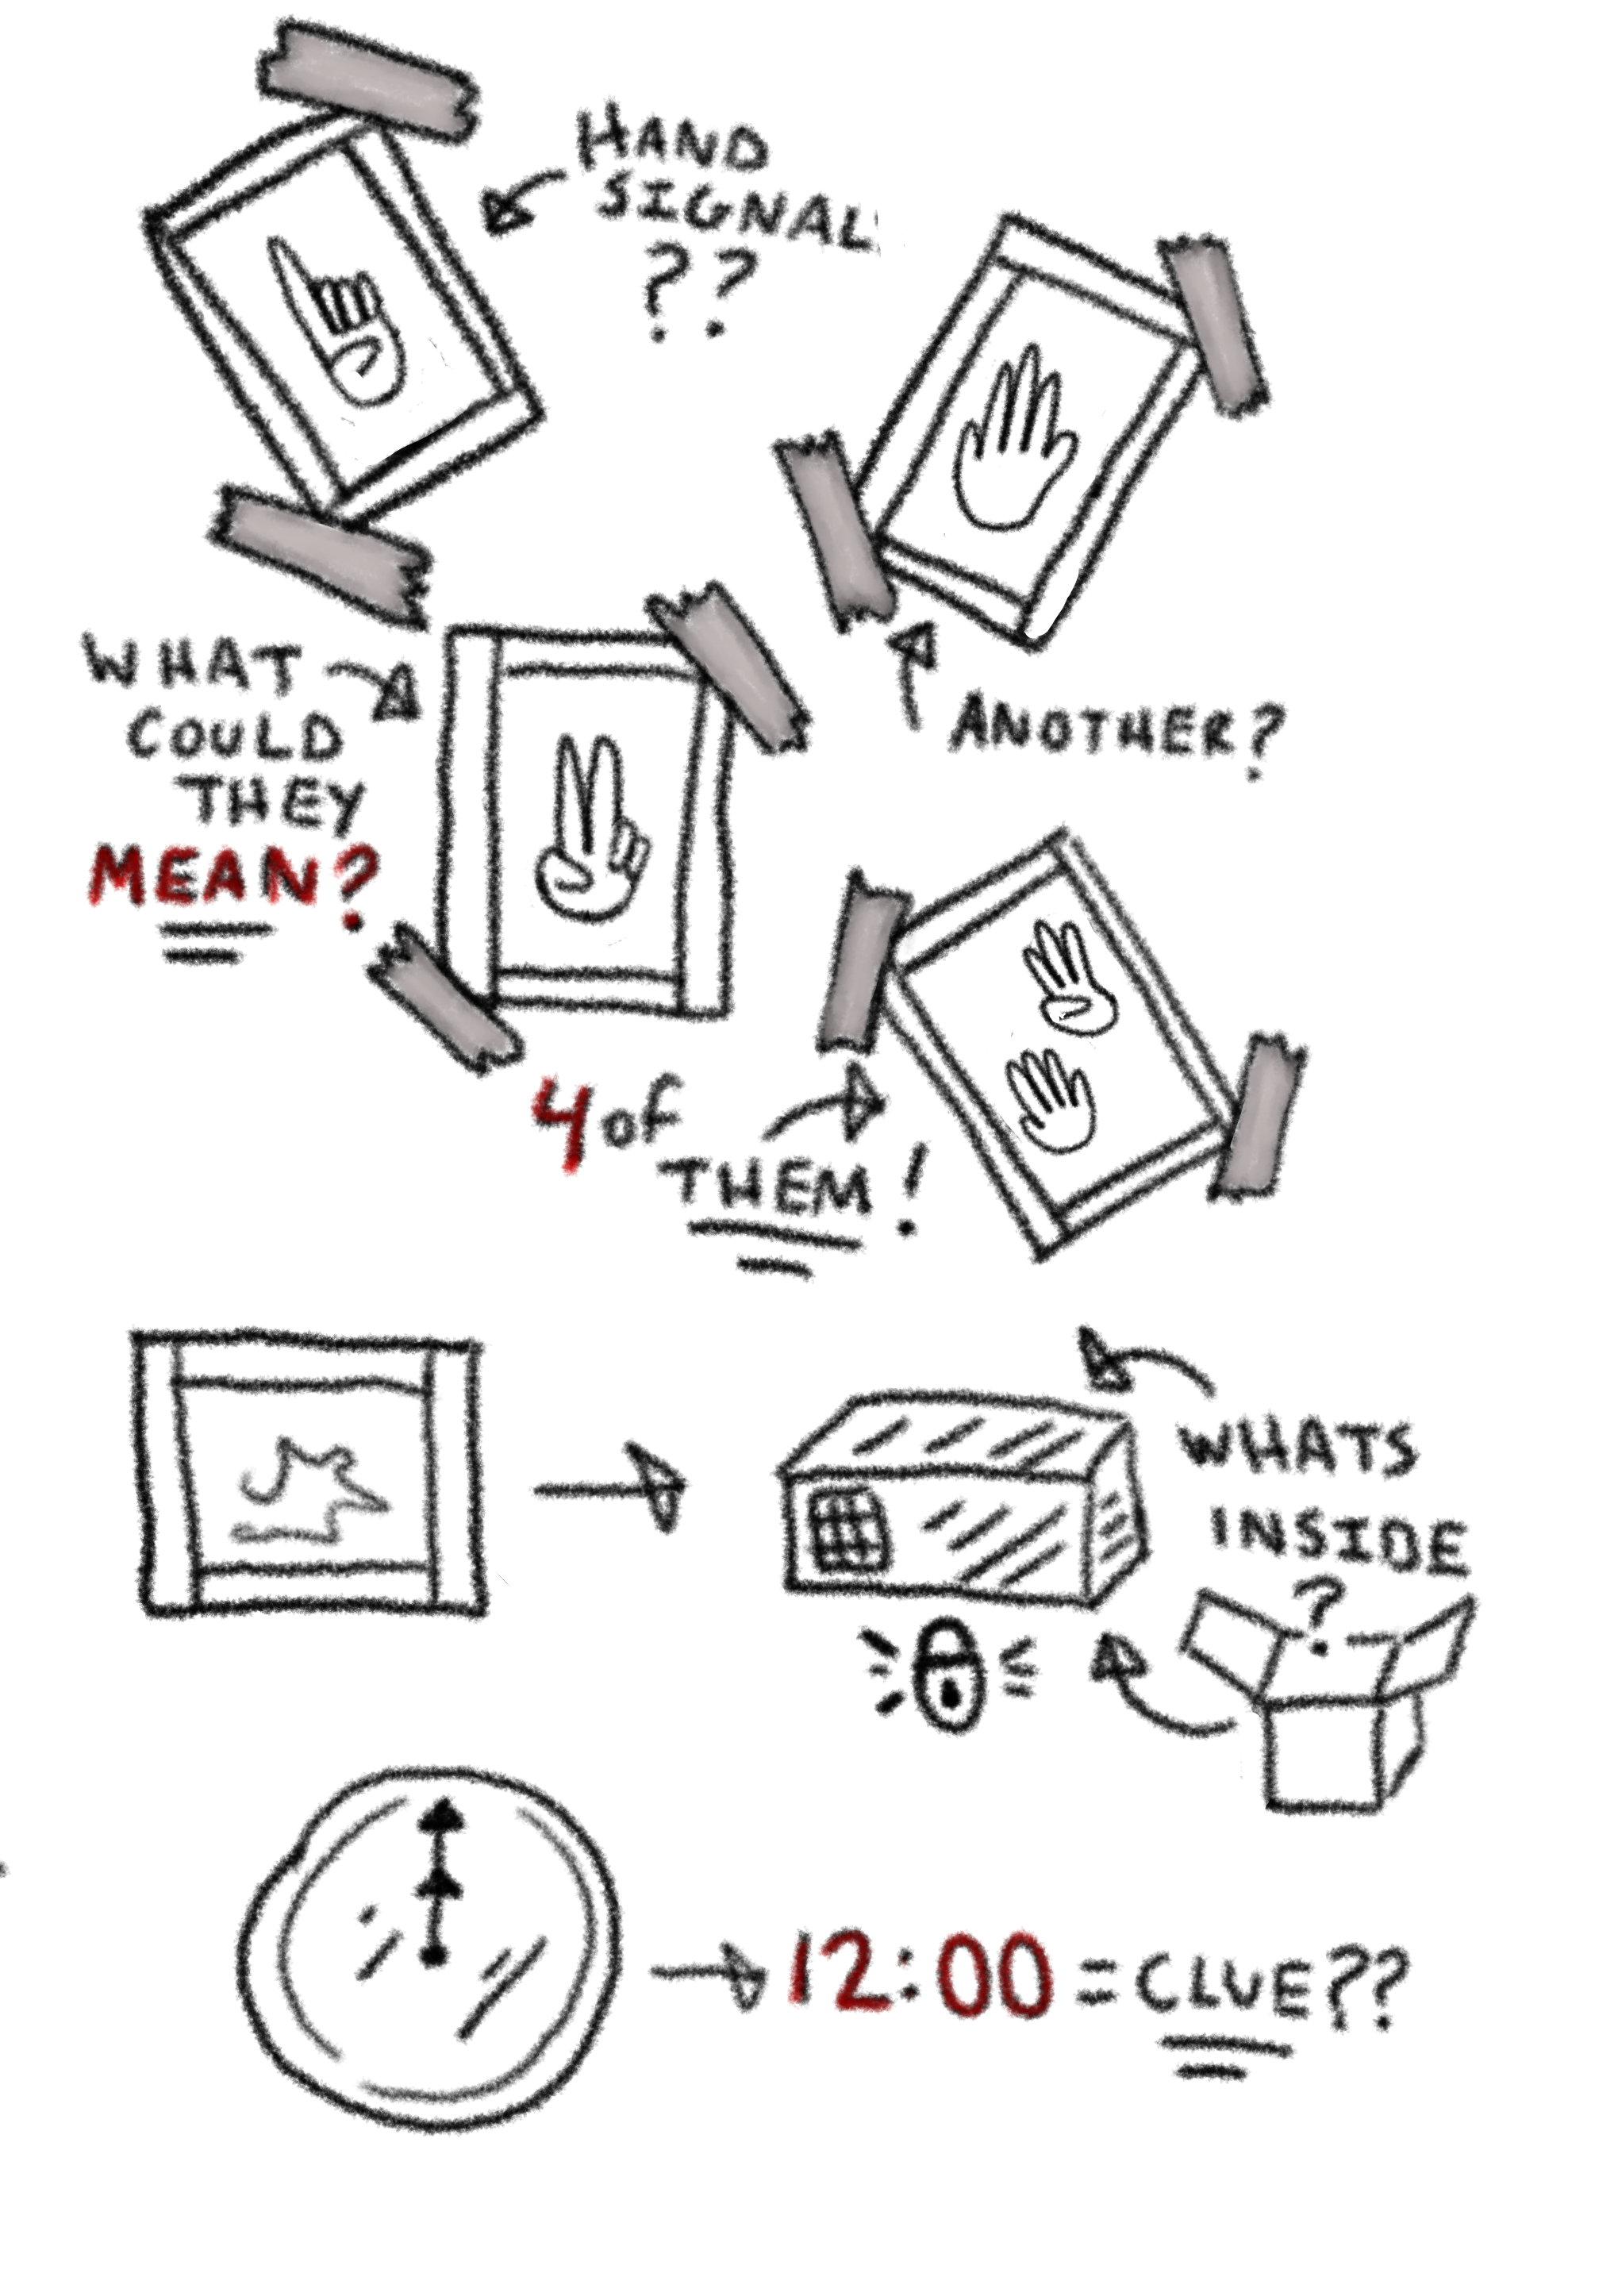 HAND
SIGNAL
??
ANOTHER?
WHAT
COULD
THEY
MEAN?
4 of
THEM!
WHATS
INSIDE
?
12:00 = CLUE??